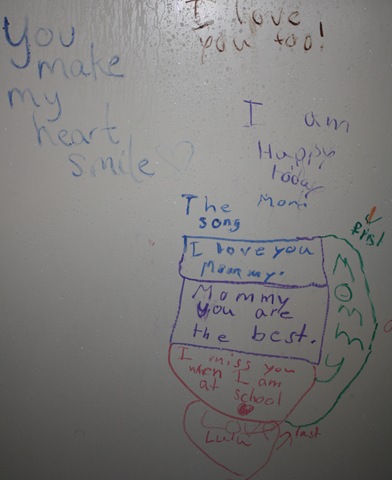 You
make
my
heart
smile
I love
you too!
I am
Happy
today
The Mom
song
first
Mommy
I love you
Mommy.
Mommy
you are
the best.
I miss you
when I am
at school
Love
Lulu
last